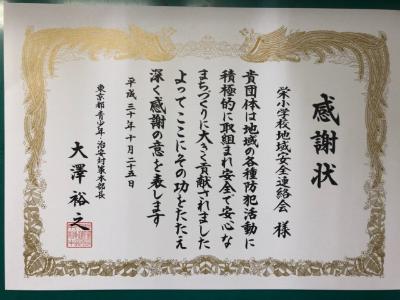 感謝状
栄小学校地域安全連絡会 様
貴団体は地域の各種防犯活動に
積極的に取組まれ安全で安心な
まちづくりに大きく貢献されました
よってここにその功をたたえ
深く感謝の意を表します
平成三十年十月二十五日
東京都青少年・治安対策本部長
大澤裕之